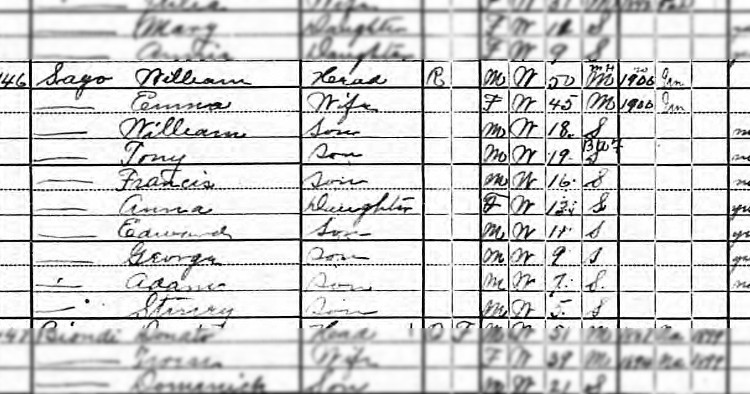 Mary Daughter F W S
Annie Daughter F W 9 S
46 Sago William Head R M W 50 M 1900
—— Emma Wife F W 45 M 1900
—— William Son M W 18 S
—— Tony Son M W 19 S
—— Francis Son M W 16 S
—— Anna Daughter F W 13 S
—— Edward Son M W 11 S
—— George Son M W 9 S
—— Adam Son M W 7 S
—— Son M W 5 S
47 Biondi Donato Head O F M W 51 M
—— Wife F W 39 M
—— Domenick Son M W 21 S